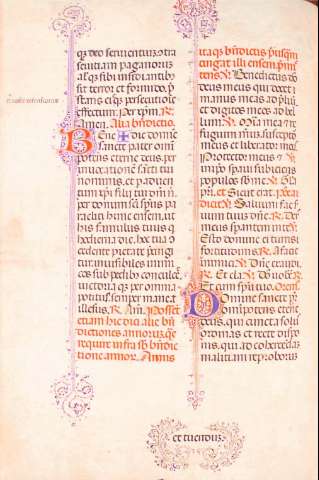 que deo seruientiuz otra
seuitiam paganorum
alijsque sibi insidiantib.
sit terror et formido. p
stans eisque persecutiois
effectum. Per xpm. R.
Amen. Alia bndictio.
Bene ✠ dic domine
sancte pater omni
potens eterne deus. per
inuocationem sancti tui
nominis. et per aduen
tum xpi filij tui dni nri.
per donum sci spus pa
racliti hunc ensem. ut
his famulus tuus qui
hodierna die. hoc tua co
cedente pietate precingi
tur. inuisibiles inimi
cos sub pedibus conculcet.
uictoriaque per omnia
potitus. semper maneat
illesus. R. Am. Posset
etiam hic dici alie bn
dictiones armorum. que
require infra sub bndic
tione armorum. Armis
itaque bndictis. priusquam
cingat illi ensem. pon
Benedictus do
deus meus qui docet
manus meas ad pliu.
et digitos meos ad bel
lum. Mia mea et re
fugium meum. susceptor
meus et liberator meus.
Protector meus et
in ipso speraui. subicis
populos sub me. Gla
pri. et Sicut erat.
dicit. Saluum fac ser
uum tuum dne. R. Deus
meus sperantem in te.
Esto domine ei turris
fortitudinis. R. A facie
inimici. Dne exaudi.
R. Et cla. Dns uobis. R.
Et cum spiritu tuo. Oremus.
Domine sancte pr
omnipotens eterne
deus. qui cuncta solus
ordinas. et recte dispo
nis. qui ad cohercendam
malitiam reproborum
et tuendum.